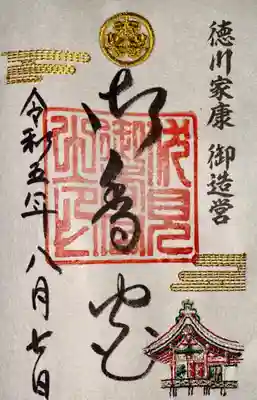 徳川家康 御造営
御香宮
令和五年八月七日